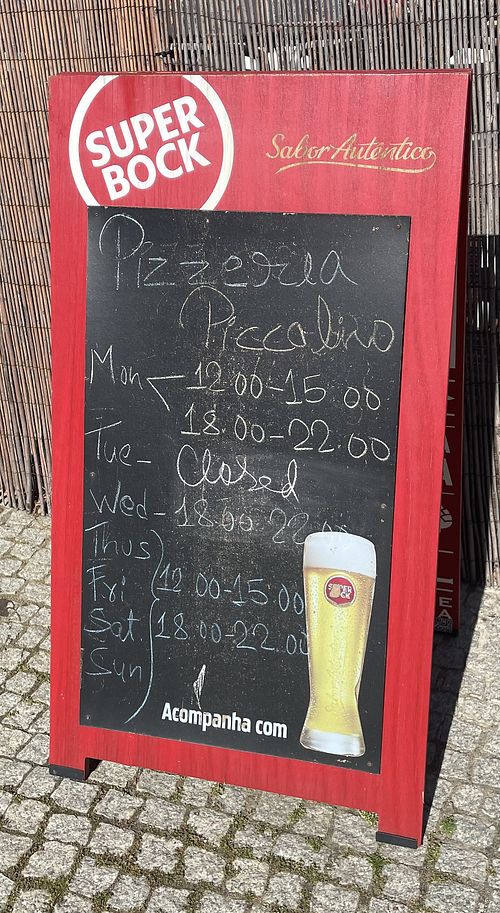 SUPER
BOCK
Sabor Autêntico
Pizzeria
Piccolino
Mon 12.00-15.00
18.00-22.00
Tue- Closed
Wed-18.00-22.00
Thus
Fri 12.00-15.00
Sat. 18.00-22.00
Sun
SUPER
BOCK
Acompanha com